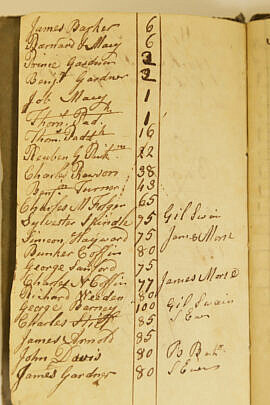 James Barker 6
Barnard Macy 6
Prince Gardner 3
Benjn Gardner 2
Job Macy 1
Thom. 1
Thom. 16
Reuben G 22
Charles Rawson 38
Benjn Turner 43
Charles M Folger 65
Sylvester Spindle 95 Gil Swain
Simeon Hayward 75 James Morse
Bunker Coffin 80
George Sanford 75
Charles N Coffin 77 James Morse
Richard Weeden 80
George Barney 100 Gil Swain
Charles 85 S
James Arnold 85
John Davis 80 B
James Gardner 80 S